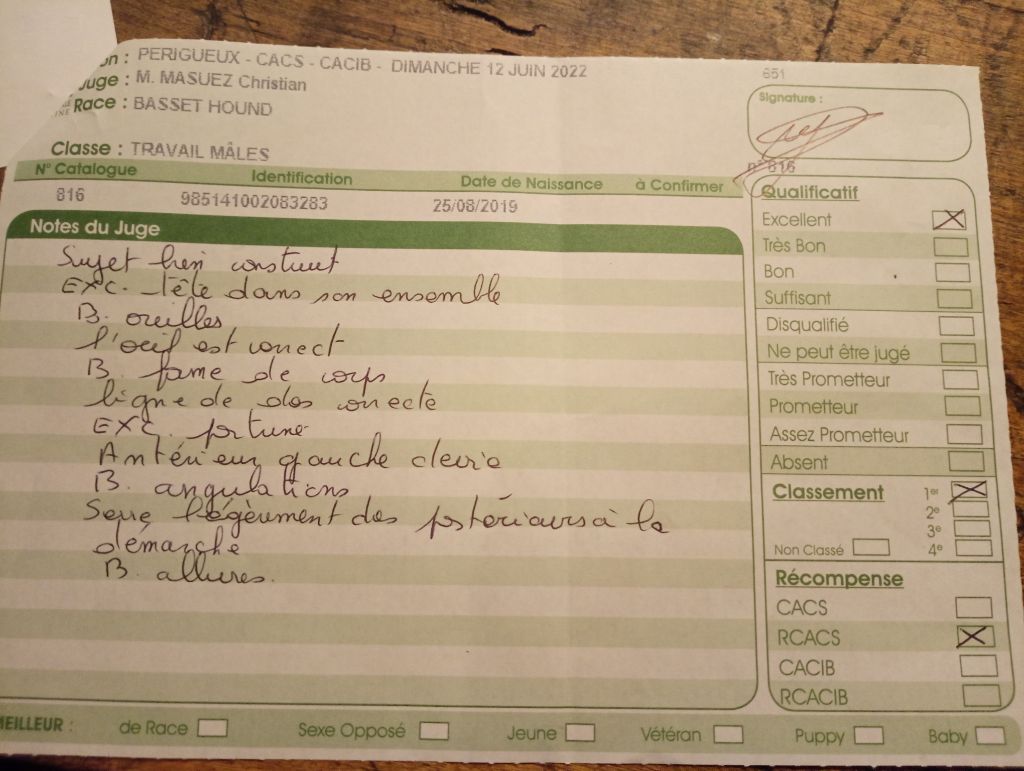 on : PERIGUEUX - CACS - CACIB - DIMANCHE 12 JUIN 2022
Juge : M. MASUEZ Christian
Race : BASSET HOUND
Classe : TRAVAIL MÂLES
651
Signature :
n° 816
N° Catalogue Identification Date de Naissance à Confirmer
816 985141002083283 25/08/2019
Notes du Juge
Sujet bien construit
EXC. tête dans son ensemble
B. oreilles
l'oeil est correct
B. forme de corps
ligne de dos correcte
EXC. poitrine
Antérieur gauche dévié
B. angulations
Serre légèrement des postérieurs à la
démarche
B. allures.
Qualificatif
Excellent
Très Bon
Bon
Suffisant
Disqualifié
Ne peut être jugé
Très Prometteur
Prometteur
Assez Prometteur
Absent
Classement 1er
2e
3e
Non Classé 4e
Récompense
CACS
RCACS
CACIB
RCACIB
MEILLEUR : de Race Sexe Opposé Jeune Vétéran Puppy Baby